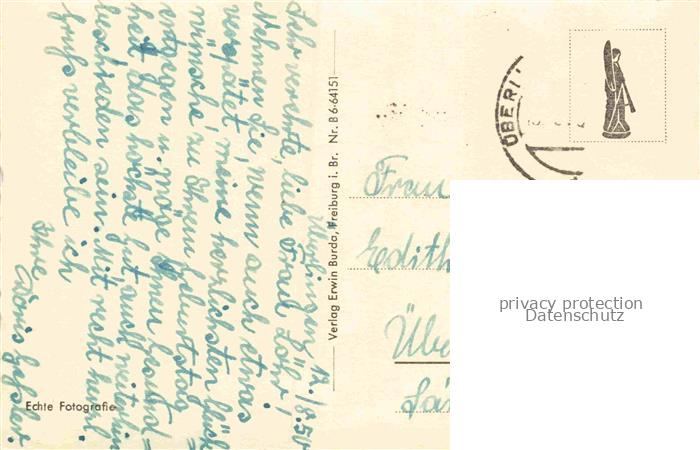 Überlingen 12./8.50
Sehr verehrte, liebe Frau Löhr!
Nehmen Sie, wenn auch etwas
verspätet, meine herzlichsten Glück=
wünsche zu Ihrem Geburtstag
entgegen u. möge Ihnen Gesund=
heit das höchste Gut auch weiterhin
beschieden sein. Mit recht herzl.
Gruß verbleibe ich
Ihre
Echte Fotografie
Verlag Erwin Burda, Freiburg i. Br. Nr. B 6-64151
ÜBERL
Frau
Edith
Übe
privacy protection
Datenschutz